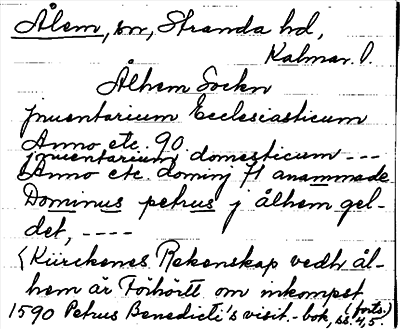 Ålem, sn, Stranda hd,
Kalmar l.
Ålhem Sockn
jnuentarium Ecclesiasticum
Anno etc. 90.
jnuentarium domesticum ---
Anno etc. dominj 71 anammade
Dominus petrus j ålhem gel-
det, ----
(Kiirckenes Rekenskap vedh ål-
hem är Förhörtt om inkompst
1590 Petrus Benedicti's visit.-bok, ss. 4, 5. (forts.)